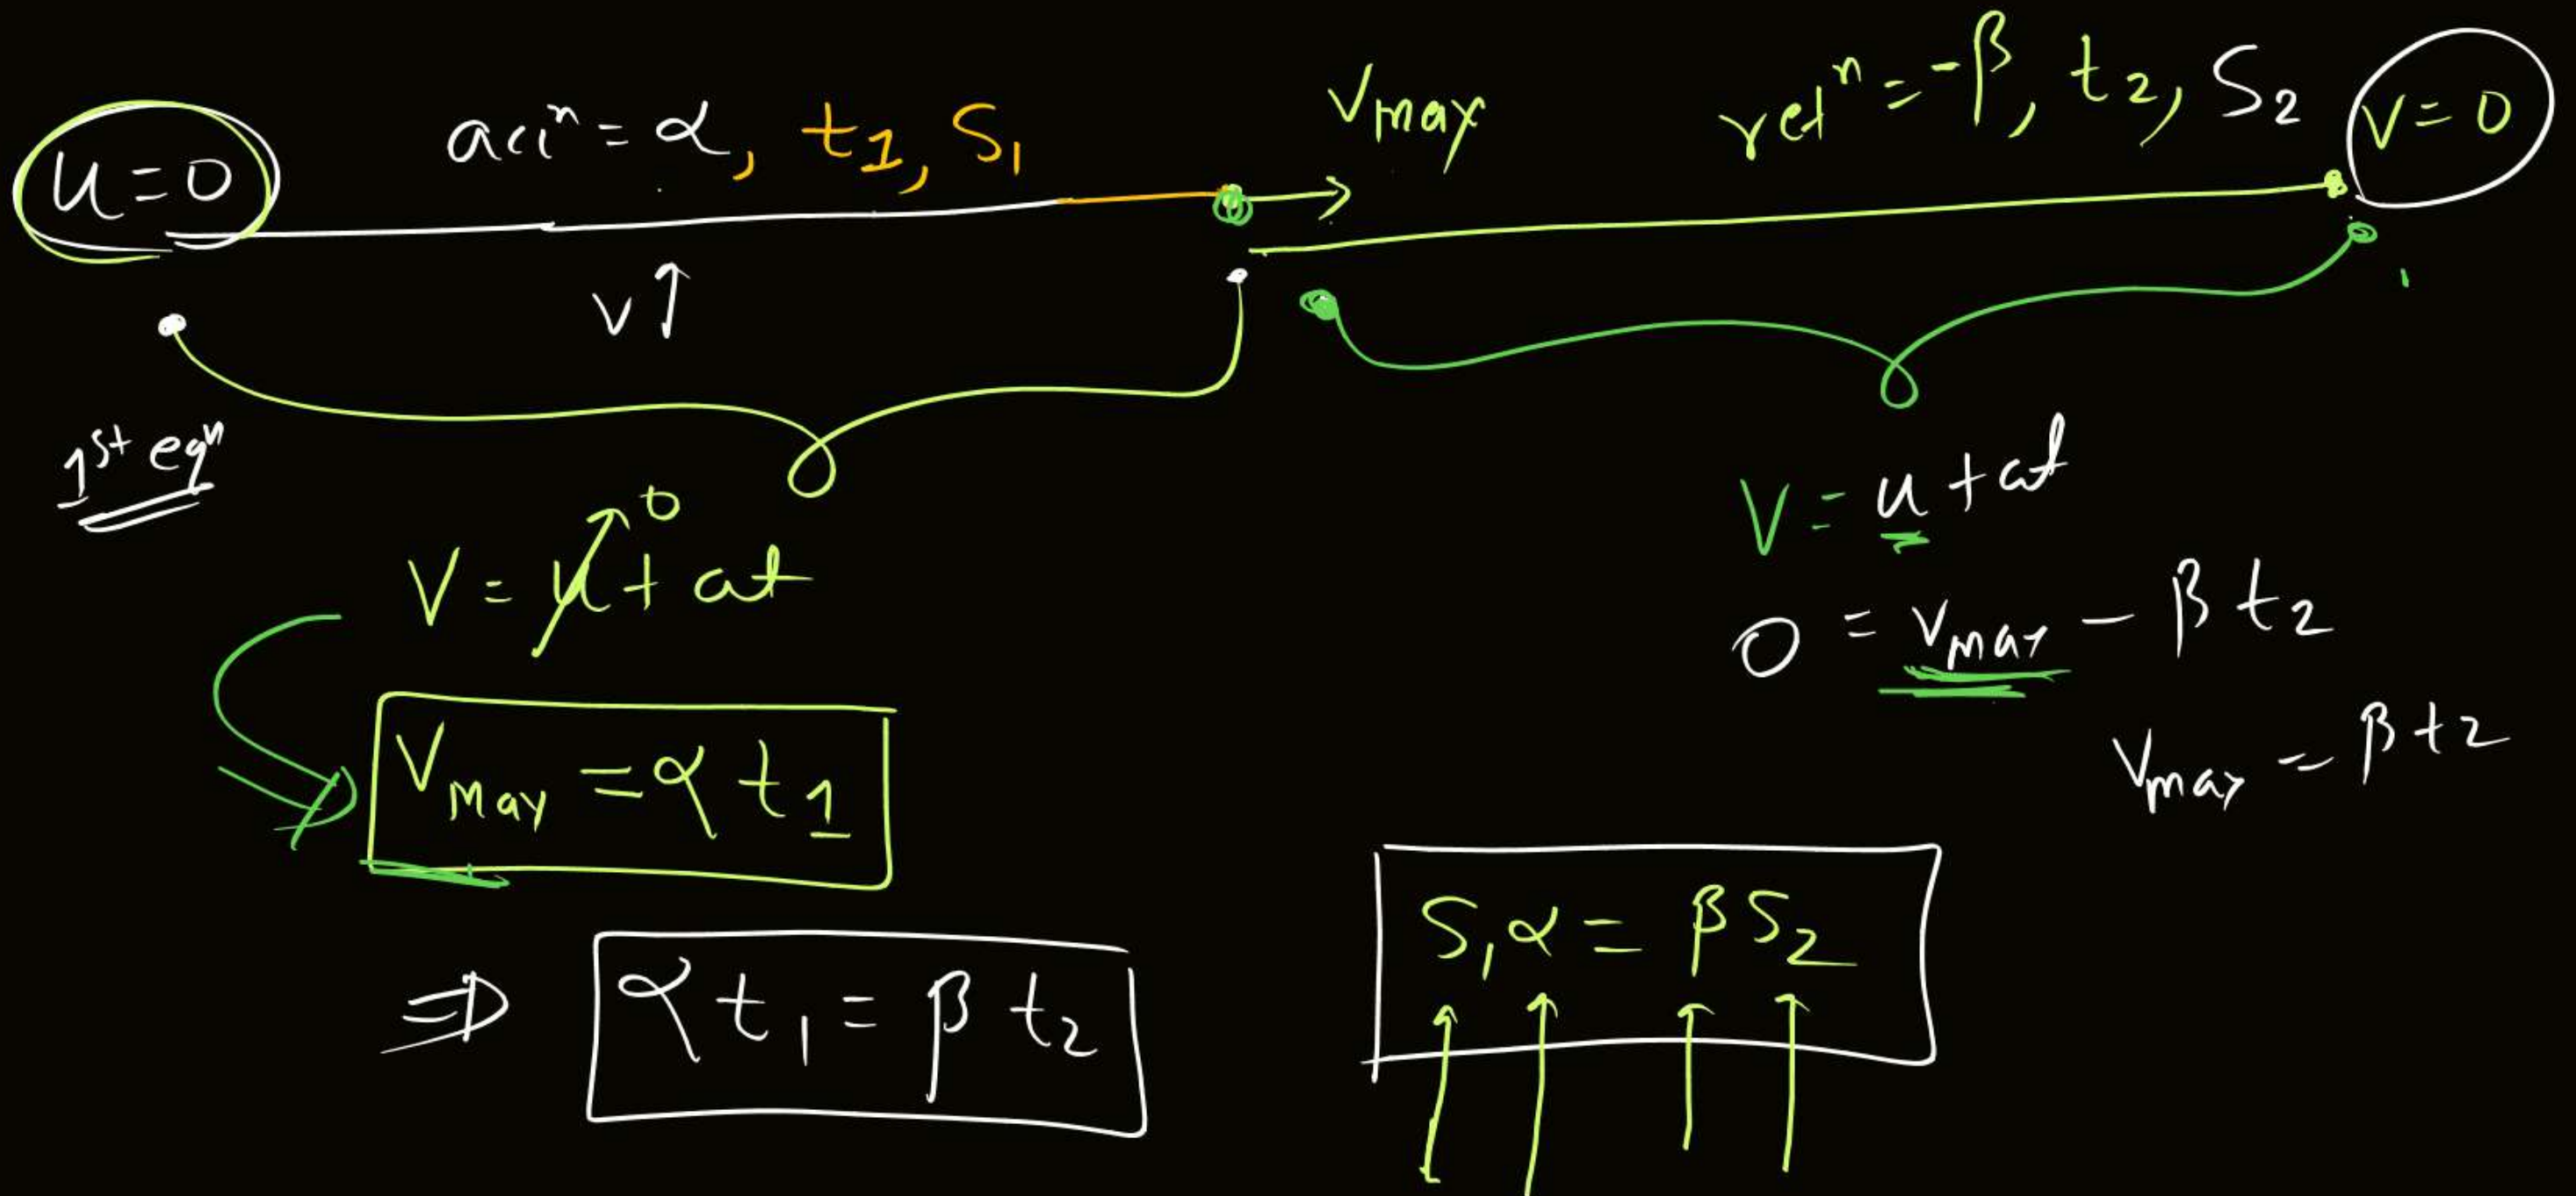 u = 0
acc^n = α, t1, S1
Vmax
ret^n = -β, t2, S2
V = 0
V↑
1st eq^n
V = u + at
0
Vmax = α t1
⇒ α t1 = β t2
V = u + at
0 = Vmax - β t2
Vmax = β t2
S1 α = β S2